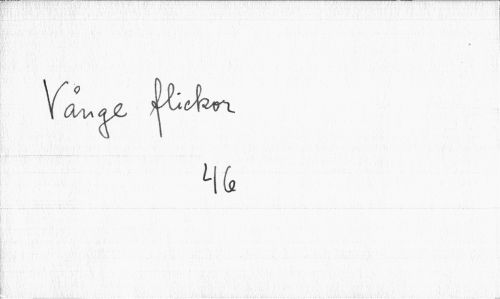 Vånge flickor
46